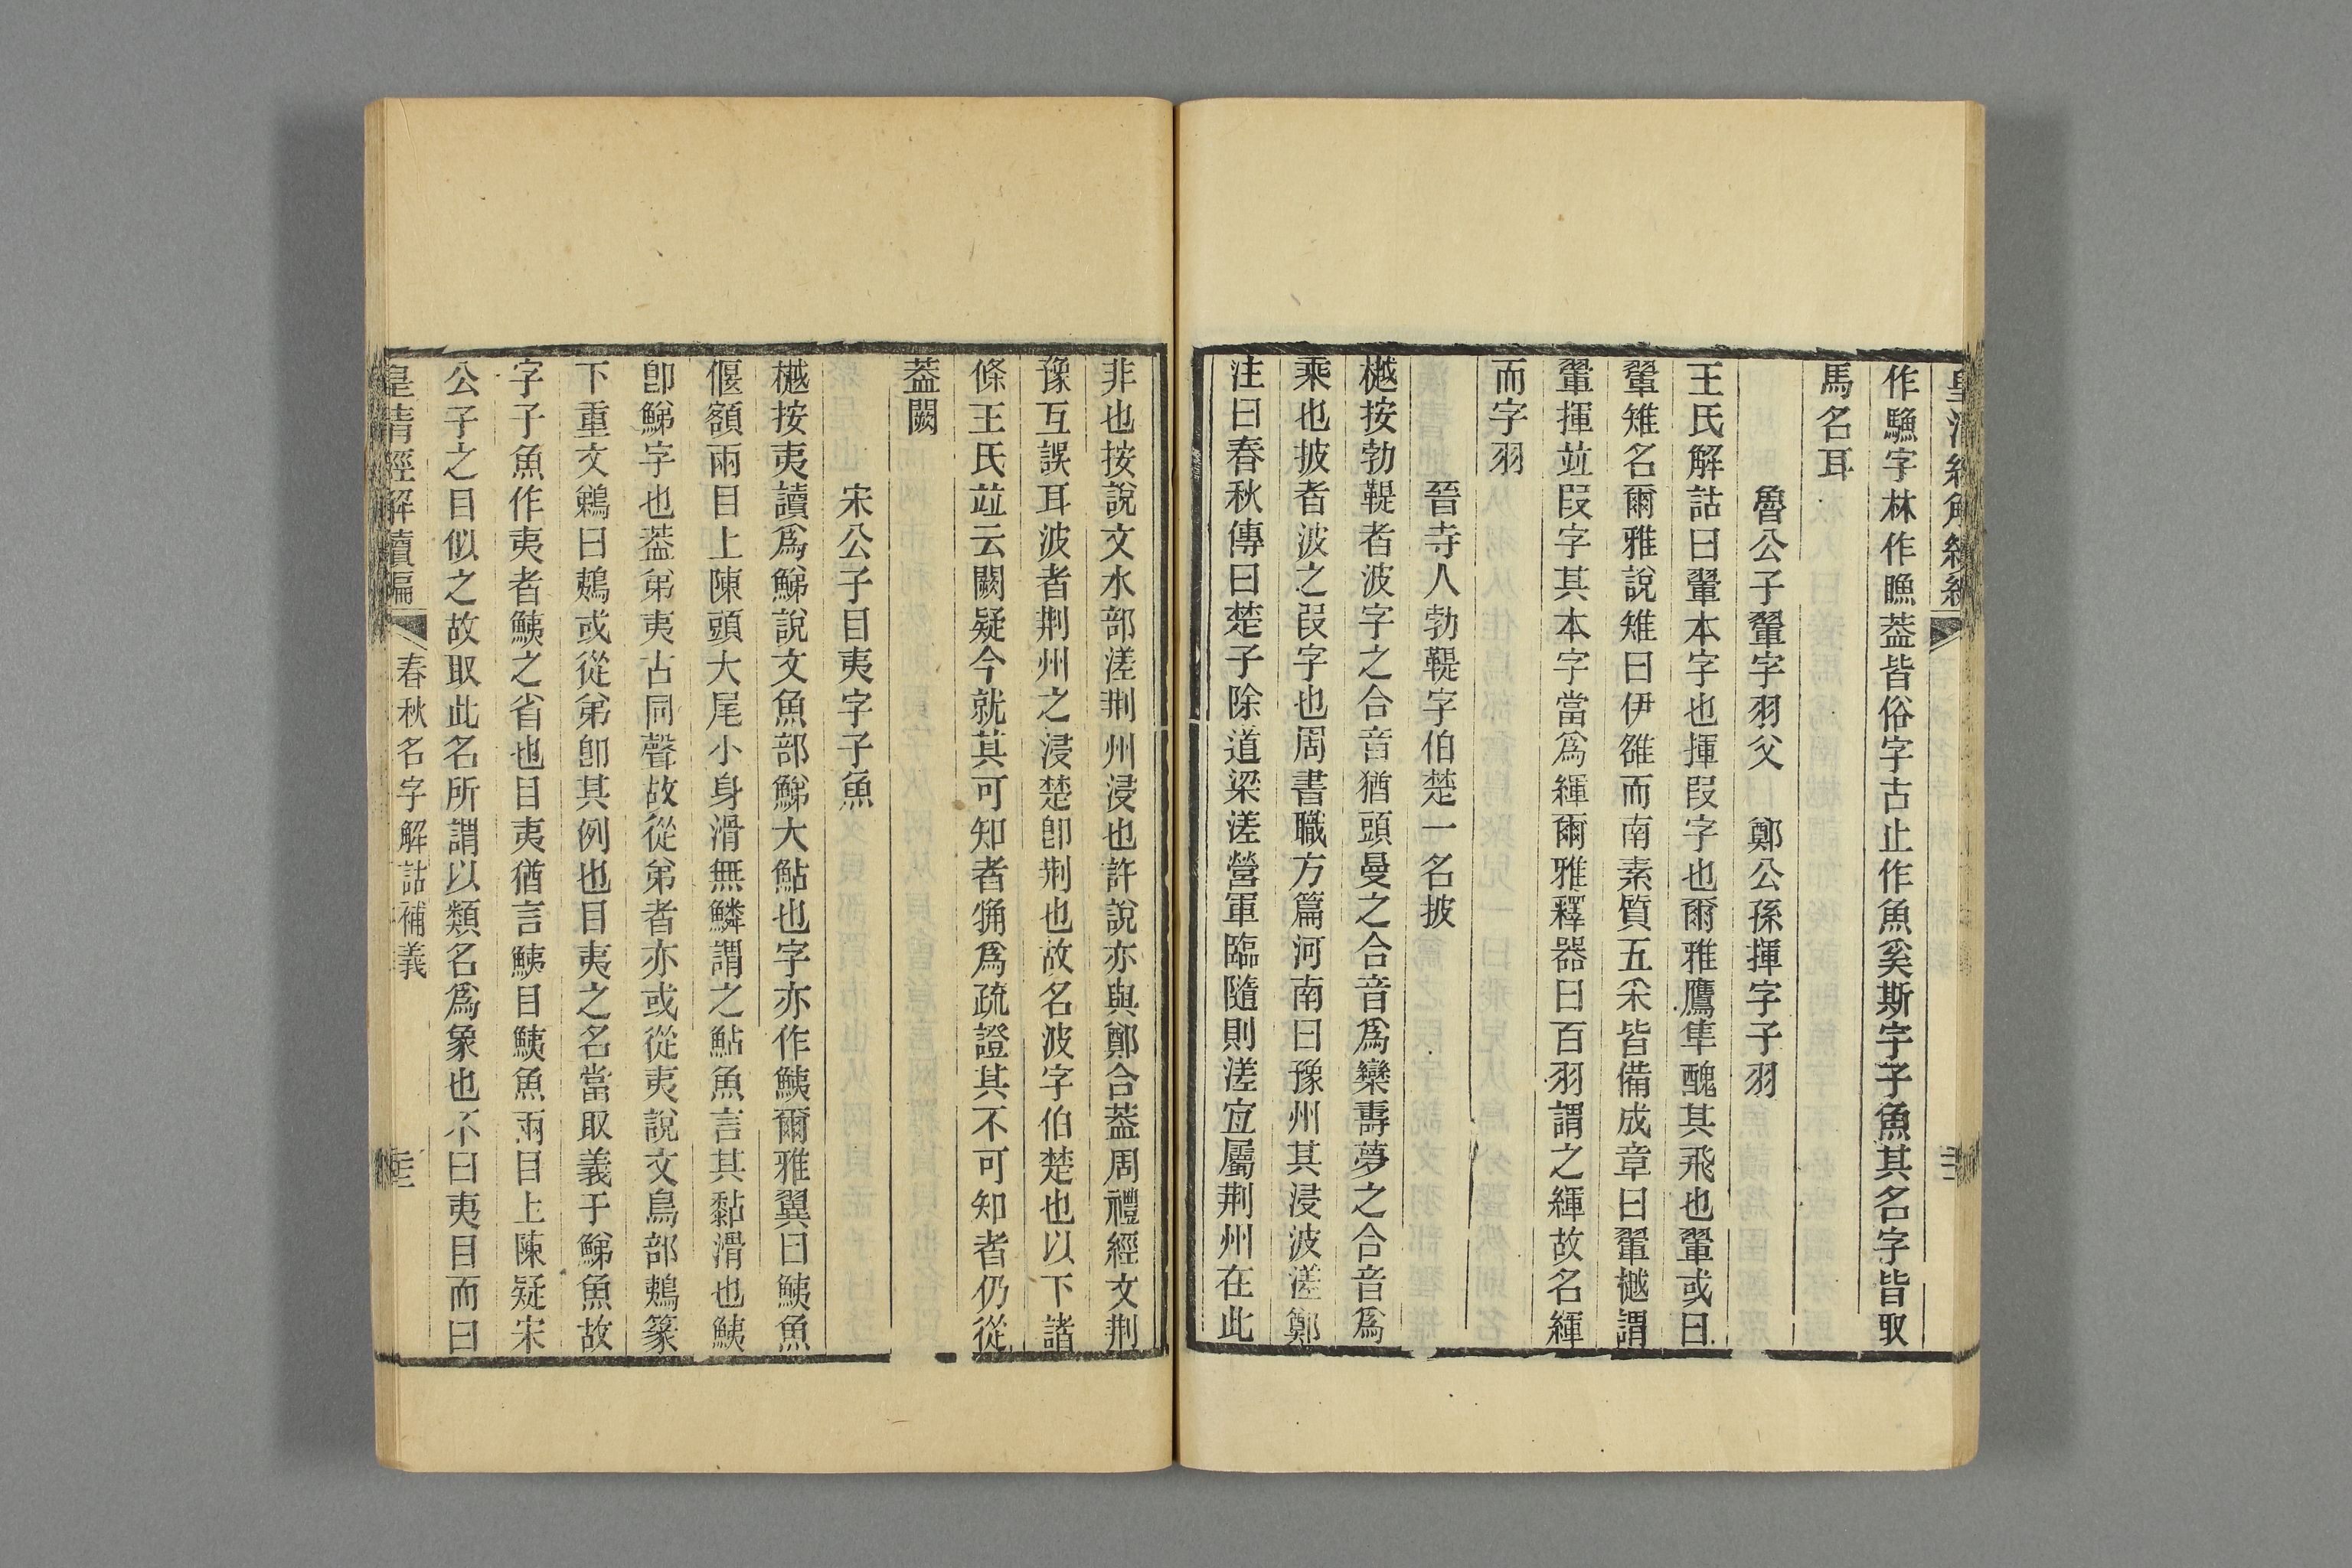 作䲣字林作瞧葢皆俗字古止作魚奚斯字子魚其名字皆取
馬名耳
魯公子翬字羽父　鄭公孫揮字子羽
王氏解詁曰翬本字也揮叚字也爾雅鷹隼醜其飛也翬或曰
翬雉名爾雅說雉曰伊雒而南素質五采皆備成章曰翬樾謂
翬揮竝叚字其本字當爲緷爾雅釋器曰百羽謂之緷故名緷
而字羽
晉寺人勃鞮字伯楚一名披
樾按勃鞮者波字之合音猶頭曼之合音爲欒壽夢之合音爲
乘也披者波之叚字也周書職方篇河南曰豫州其浸波溠鄭
注曰春秋傳曰楚子除道梁溠營軍臨隨則溠宐屬荆州在此
非也按說文水部溠荆州浸也許說亦與鄭合葢周禮經文荆
豫互誤耳波者荆州之浸楚卽荆也故名波字伯楚也以下諸
條王氏竝云闕疑今就其可知者觕爲疏證其不可知者仍從
葢闕
宋公子目夷字子魚
樾按夷讀爲鮷說文魚部鮷大鮎也字亦作鮧爾雅翼曰鮧魚
偃額兩目上陳頭大尾小身滑無鱗謂之鮎魚言其黏滑也鮧
卽鮷字也葢弟夷古同聲故從弟者亦或從夷說文鳥部鶇篆
下重文鵜曰鶇或從弟卽其例也目夷之名當取義于鮷魚故
字子魚作夷者鮧之省也目夷猶言鮧目鮧魚兩目上陳疑宋
公子之目似之故取此名所謂以類名爲象也不曰夷目而曰
皇清經解續編　春秋名字解詁補義